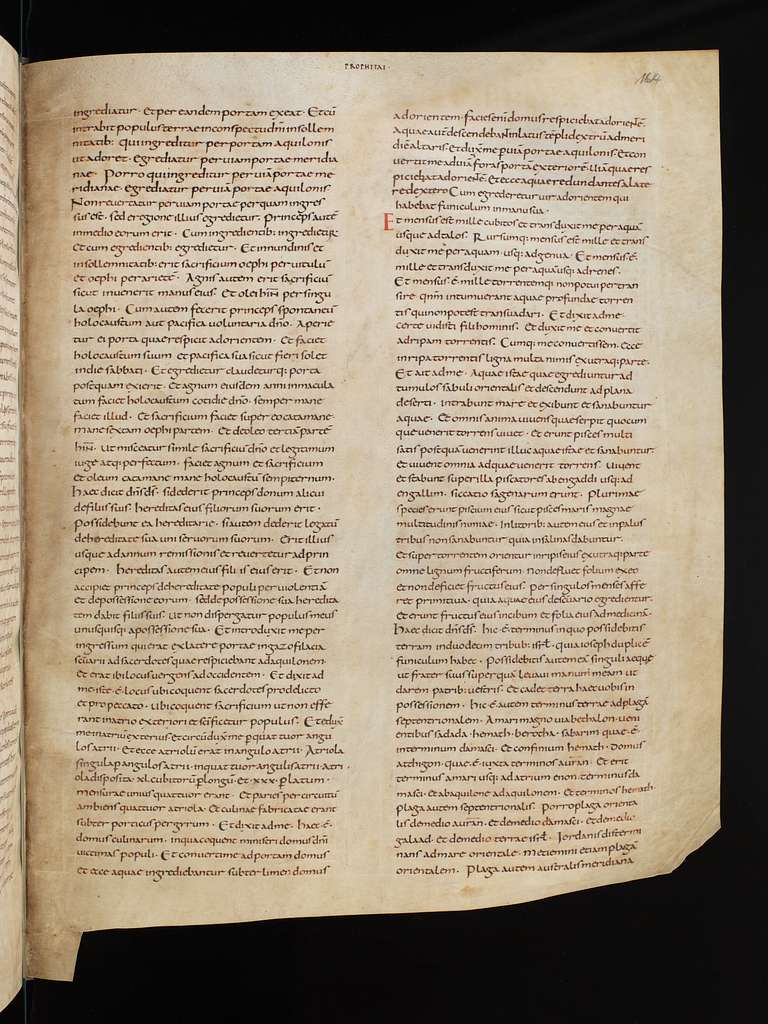 PROPHETAE·
164
ingrediatur· Et per eandem portam exeat· Et cū
intrabit populus terrae in conspectu dnī in sollem
nitatib: qui ingreditur per portam aquilonis
ut adoret· egrediatur per viam portae meridia
nae· Porro qui ingreditur per viā portae me
ridianae· egrediatur per viā portae aquilonis
Non revertatur per viam portae per quam ingres
sus est· sed e regione illius egredietur· princeps autē
in medio eorum erit· Cum ingredientib: ingredietur
et cum egredientib: egredietur· Et in nundinis et
in sollemnitatib: erit sacrificium oephi per vitulū
et oephi per arietē· Agnis autem erit sacrificiū
sicut invenerit manus eius· Et olei hin per singu
la oephi· Cum autem fecerit princeps spontaneū
holocaustum aut pacifica voluntaria dno· Aperie
tur ei porta quae respicit ad orientem· Et faciet
holocaustum suum et pacifica sua sicut fieri solet
in die sabbati· Et egredietur claudeturq: porta
postquam exierit· Et agnum eiusdem anni inmacula
tum faciet holocaustum cotidie dno· semper mane
faciet illud· Et sacrificium faciet super eo cata mane
mane sextam oephi partem· Et de oleo tertiā partē
hin· ut misceatur similae sacrificiū dno legitimum
iuge atq: perfectum· faciet agnum et sacrificium
et oleum cata mane mane holocaustū sempiternum·
Haec dicit dns ds· si dederit princeps donum alicui
de filiis suis· hereditas eius filiorum suorum erit·
Possidebunt ea hereditarie· Si autem dederit legatū
de hereditate sua uni servorum suorum· Erit illius
usque ad annum remissionis et revertetur ad prin
cipem· hereditas autem eius filiis eius erit· Et non
accipiet princeps de hereditate populi per violentiā
et de possessione eorum· sed de possessione sua heredita
tem dabit filiis suis· ut non dispergatur populus meus
unusquisq: a possessione sua· Et introduxit me per
ingressum qui erat ex latere portae in gazofilacia
sc̄uarii ad sacerdotes quae respiciebant ad aquilonem·
Et erat ibi locus vergens ad occidentem· Et dixit ad
me· iste ē locus ubi coquent sacerdotes pro delicto
et pro peccato· ubi coquent sacrificium ut non effe
rant in atrio exteriori et sc̄ificetur populus· Et eduxit
me in atriū exterius et circūduxit me p quattuor angu
los atrii· Et ecce atriolū erat in angulo atrii· Atriola
singula p angulos atrii· in quattuor angulis atrii atri
ola disposita· xl· cubitorū p longū· et xxx· p latum·
mensurae unius quattuor erant· Et paries per circuitū
ambiens quattuor atriola· Et culinae fabricatae erant
subter porticus per gyrum· Et dixit ad me· Haec ē
domus culinarum· in qua coquent ministri domus dnī
victimas populi· Et convertit me ad portam domus
et ecce aquae ingrediebantur subter limen domus
ad orientem· facies eni domus respiciebat ad orientē·
Aquae autē descendebant in latus tēpli dextrū ad meri
diē altaris· Et duxit me p viā portae aquilonis· Et con
vertit me ad viā foras portā exteriorē· viā quae res
piciebat ad orientē· Et ecce aquae redundantes a late
re dextro Cum egrederetur vir ad orientem qui
habebat funiculum in manu sua·
Et mensus est mille cubitos et transduxit me per aquā
usque ad talos· Rursumq: mensus est mille et trans
duxit me per aquam usq: ad genua· Et mensus ē
mille et transduxit me per aquā usq: ad renes·
Et mensus ē mille torrentem q: non potui pertran
sire· qnm intumuerant aquae profundae torren
tis qui non potest transvadari· Et dixit ad me·
certe vidisti fili hominis· Et duxit me et convertit
ad ripam torrentis· Cumq: me convertissem· ecce
in ripa torrentis ligna multa nimis ex utraq: parte·
Et ait ad me· Aquae istae quae egrediuntur ad
tumulos sabuli orientalis et descendunt ad plana
deserti· intrabunt mare et exibunt et sanabuntur
aquae· Et omnis anima vivens quae serpit quocum
que venerit torrens vivet· Et erunt pisces multi
satis postquā venerint illuc aquae istae et sanabuntur·
et vivent omnia ad quae venerit torrens· Vivent
et stabunt super illa piscatores ab engaddi usq: ad
engallim· siccatio sagenarum erunt· Plurimae
species erunt piscium eius sicut pisces maris magni
multitudinis nimiae· In litorib: autem eius et in palus
tribus non sanabuntur quia in salinas dabuntur·
Et super torrentem orietur in ripis eius ex utraq: parte
omne lignum fructiferum· Non defluet folium ex eo
et non deficiet fructus eius· Per singulos menses affe
ret primitiva· quia aquae eius de sc̄uario egredientur·
Et erunt fructus eius in cibum et folia eius ad medicinā·
Haec dicit dns ds· Hic ē terminus in quo possidebitis
terram in duodecim tribub: isrl· quia ioseph duplicē
funiculum habet· Possidebitis autem eā singuli aeque
ut frater suus super quā levavi manum meam ut
darem patrib: vestris· Et cadet terra haec vobis in
possessionem· Hic ē autem terminus terrae ad plagā
septentrionalem· A mari magno via bethalon· veni
entibus sadada· hemath· berotha· sabarim quae ē
inter terminum damasci· Et confinium hemath· domus
atthigon· quae ē iuxta terminos auran· Et erit
terminus a mari usq: ad atrium enon· terminus da
masci· et ab aquilone ad aquilonem· Et terminos hemath·
plaga autem septentrionalis· Porro plaga orienta
lis de medio auran· et de medio damasci· et de medio
galaad· et de medio terrae isrl· Iordanis disterimi
nans ad mare orientale· metiemini etiam plagā
orientalem· Plaga autem australis meridiana